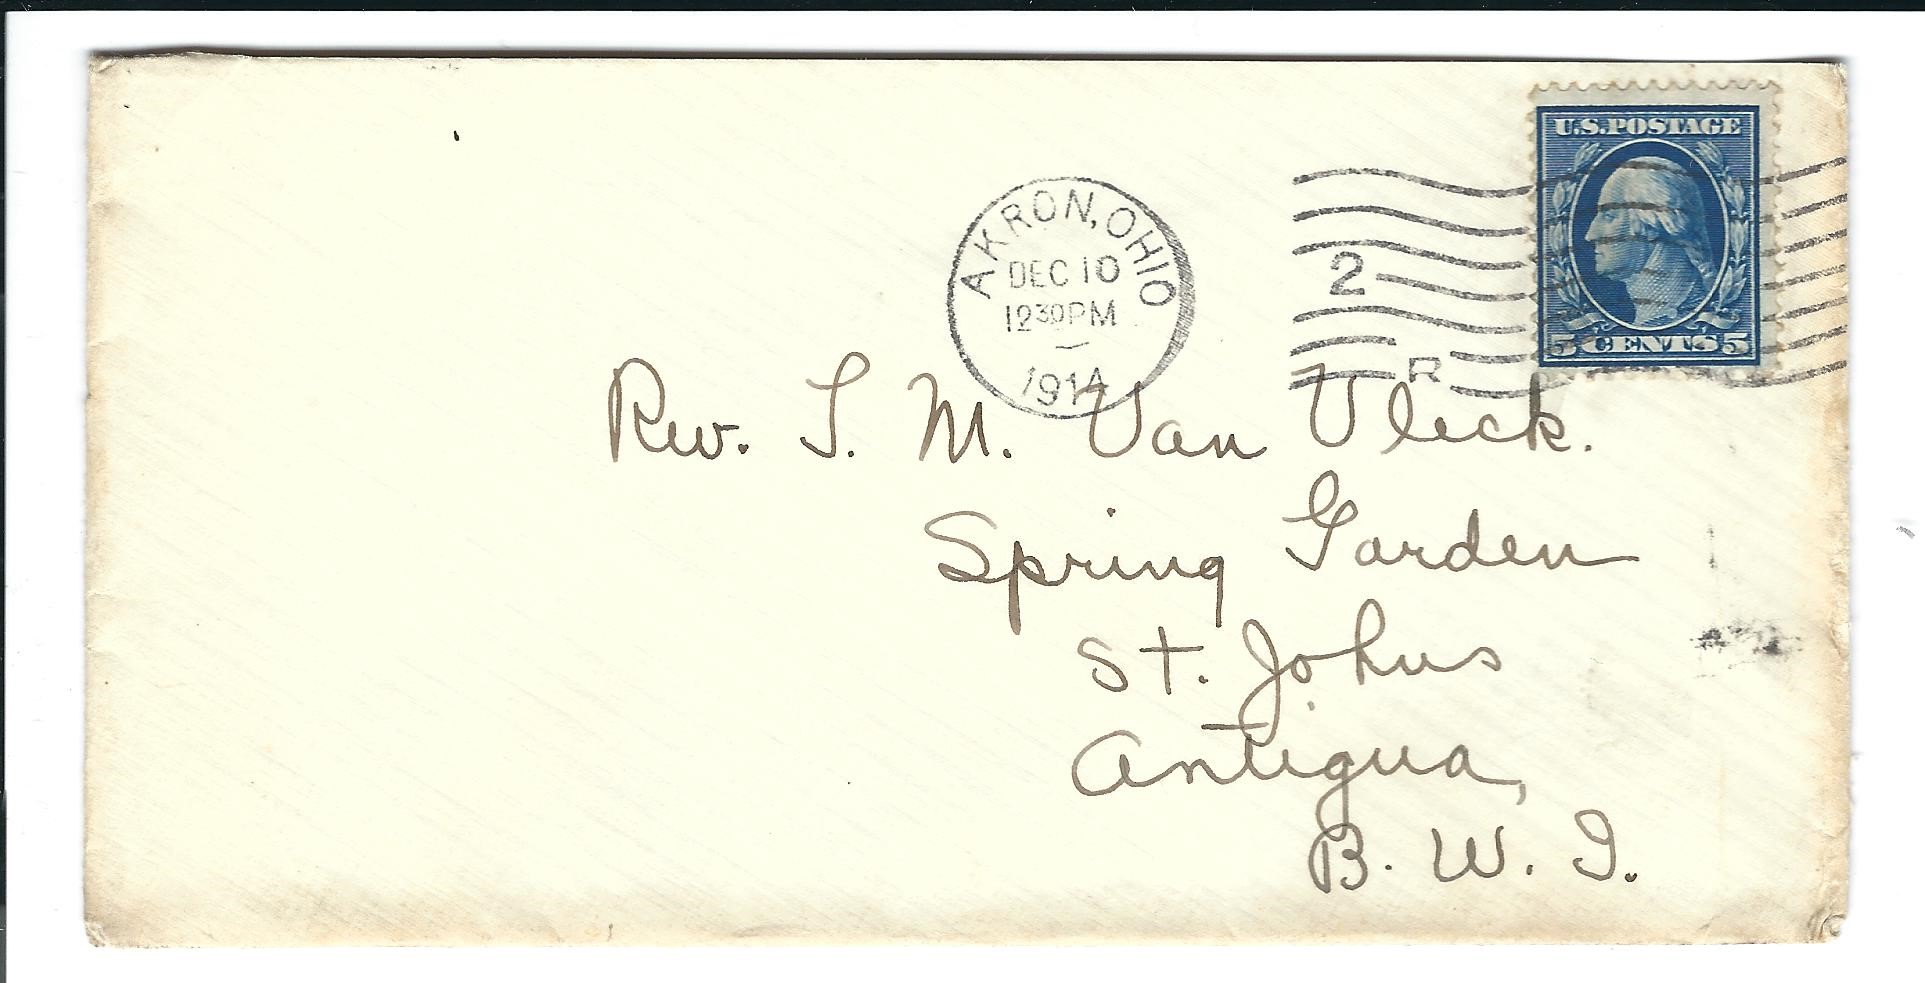 U.S. POSTAGE
5 CENTS 5
AKRON, OHIO
DEC 10
12 30 PM
1914
2
R
Rev. T. M. Van Vleck.
Spring Garden
St. Johns
Antigua,
B. W. I.